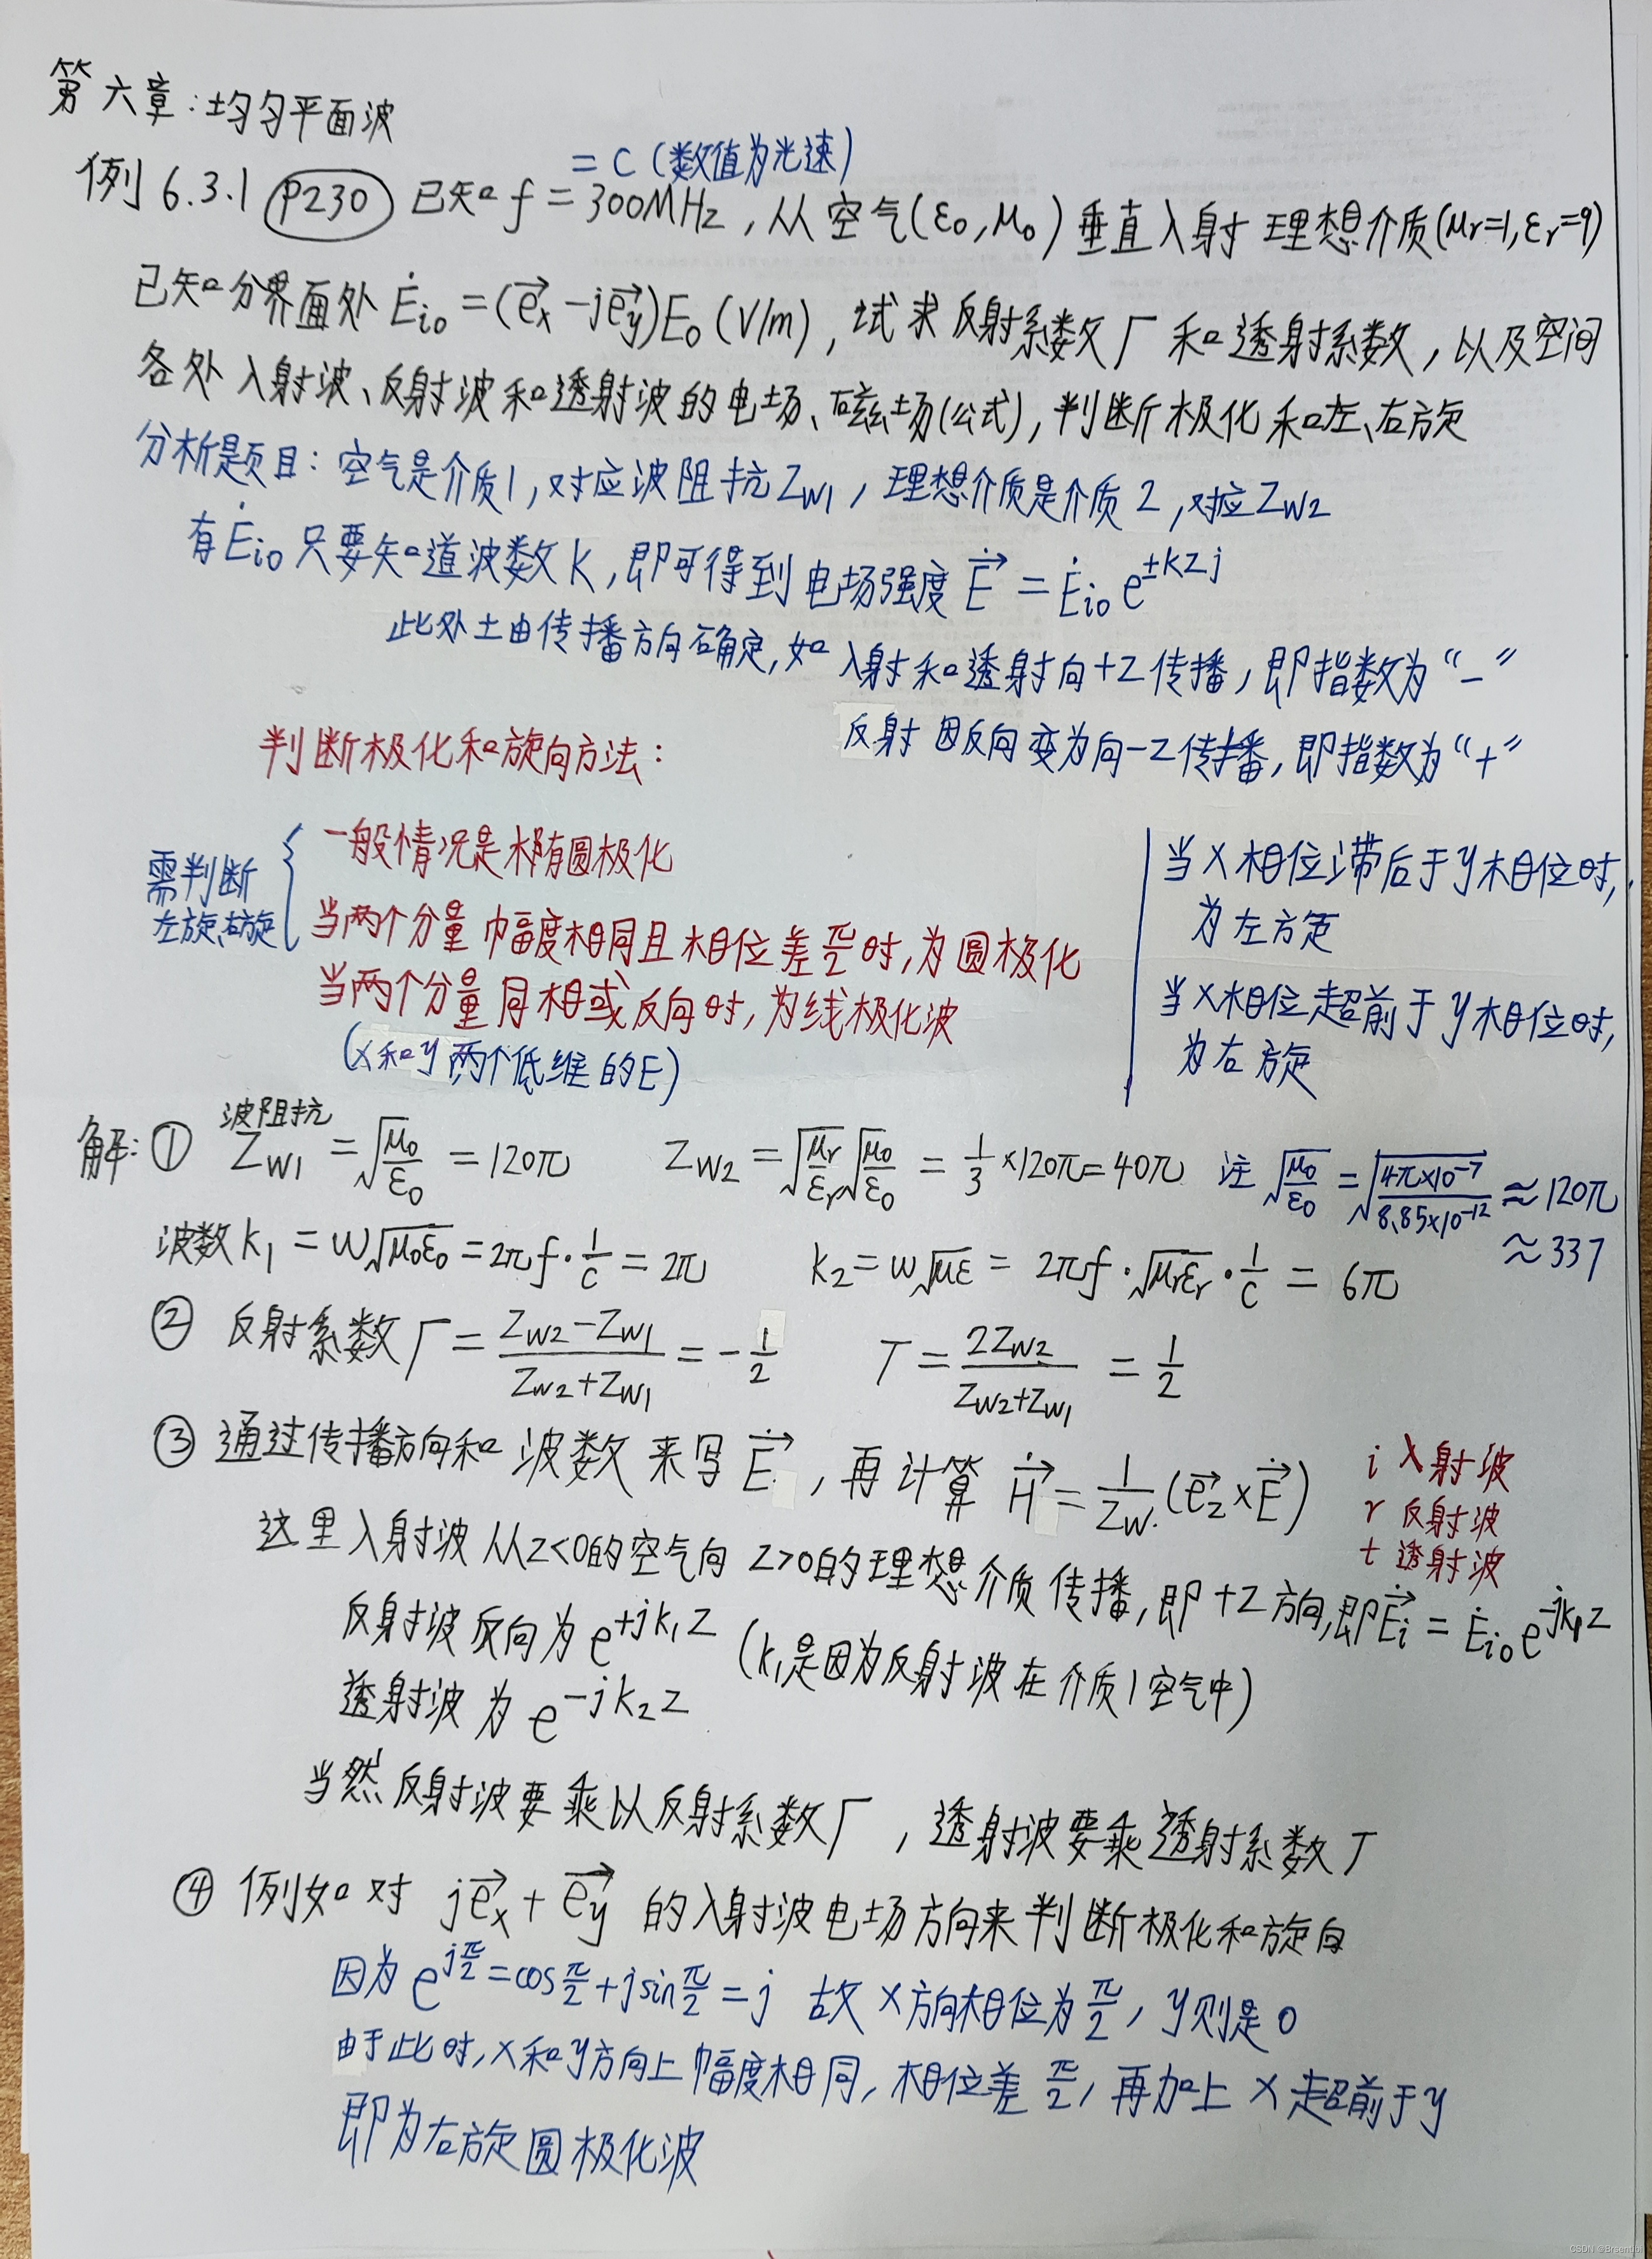 第六章:均匀平面波
=C(数值为光速)
例6.3.1 P230 已知f=300MHz,从空气(ε₀,μ₀)垂直入射理想介质(μr=1,εr=9)
已知分界面处 Ėi₀=(e⃗x-je⃗y)E₀(V/m),试求反射系数Γ和透射系数,以及空间
各处入射波、反射波和透射波的电场、磁场(公式),判断极化和左、右旋
分析题目:空气是介质1,对应波阻抗Zw₁,理想介质是介质2,对应Zw₂
有Ėi₀只要知道波数K,即可得到电场强度 E⃗̇=Ėi₀e^{±kzj}
此处±由传播方向确定,如入射和透射向+Z传播,即指数为“-”
反射因反向变为向-Z传播,即指数为“+”
判断极化和旋向方法:
需判断
左旋、右旋
一般情况是椭圆极化
当两个分量幅度相同且相位差π/2时,为圆极化
当两个分量同相或反向时,为线极化波
(x和y两个低维的E)
当X相位滞后于y相位时,
为左旋
当X相位超前于y相位时,
为右旋
波阻抗
解:① Zw₁=√(μ₀/ε₀)=120π Zw₂=√(μr/εr)√(μ₀/ε₀)=1/3×120π=40π 注 √(μ₀/ε₀)=√(4π×10⁻⁷/8.85×10⁻¹²)≈120π
≈337
波数k₁=w√(μ₀ε₀)=2πf·1/c=2π k₂=w√(με)=2πf·√(μrεr)·1/c=6π
② 反射系数Γ=(Zw₂-Zw₁)/(Zw₂+Zw₁)=-1/2 T=2Zw₂/(Zw₂+Zw₁)=1/2
③ 通过传播方向和波数来写E⃗̇,再计算 H⃗̇=1/Zw(e⃗z×E⃗̇)
i 入射波
r 反射波
t 透射波
这里入射波从z<0的空气向z>0的理想介质传播,即+Z方向,即E⃗̇i=Ėi₀e^{-jk₁z}
反射波反向为e^{+jk₁z}(k₁是因为反射波在介质1空气中)
透射波为e^{-jk₂z}
当然反射波要乘以反射系数Γ,透射波要乘透射系数T
④ 例如对 je⃗x+e⃗y 的入射波电场方向来判断极化和旋向
因为e^{jπ/2}=cosπ/2+jsinπ/2=j 故X方向相位为π/2,y则是0
由于此时,x和y方向上幅度相同,相位差π/2,再加上X超前于y
即为右旋圆极化波
CSDN @Brsentibi